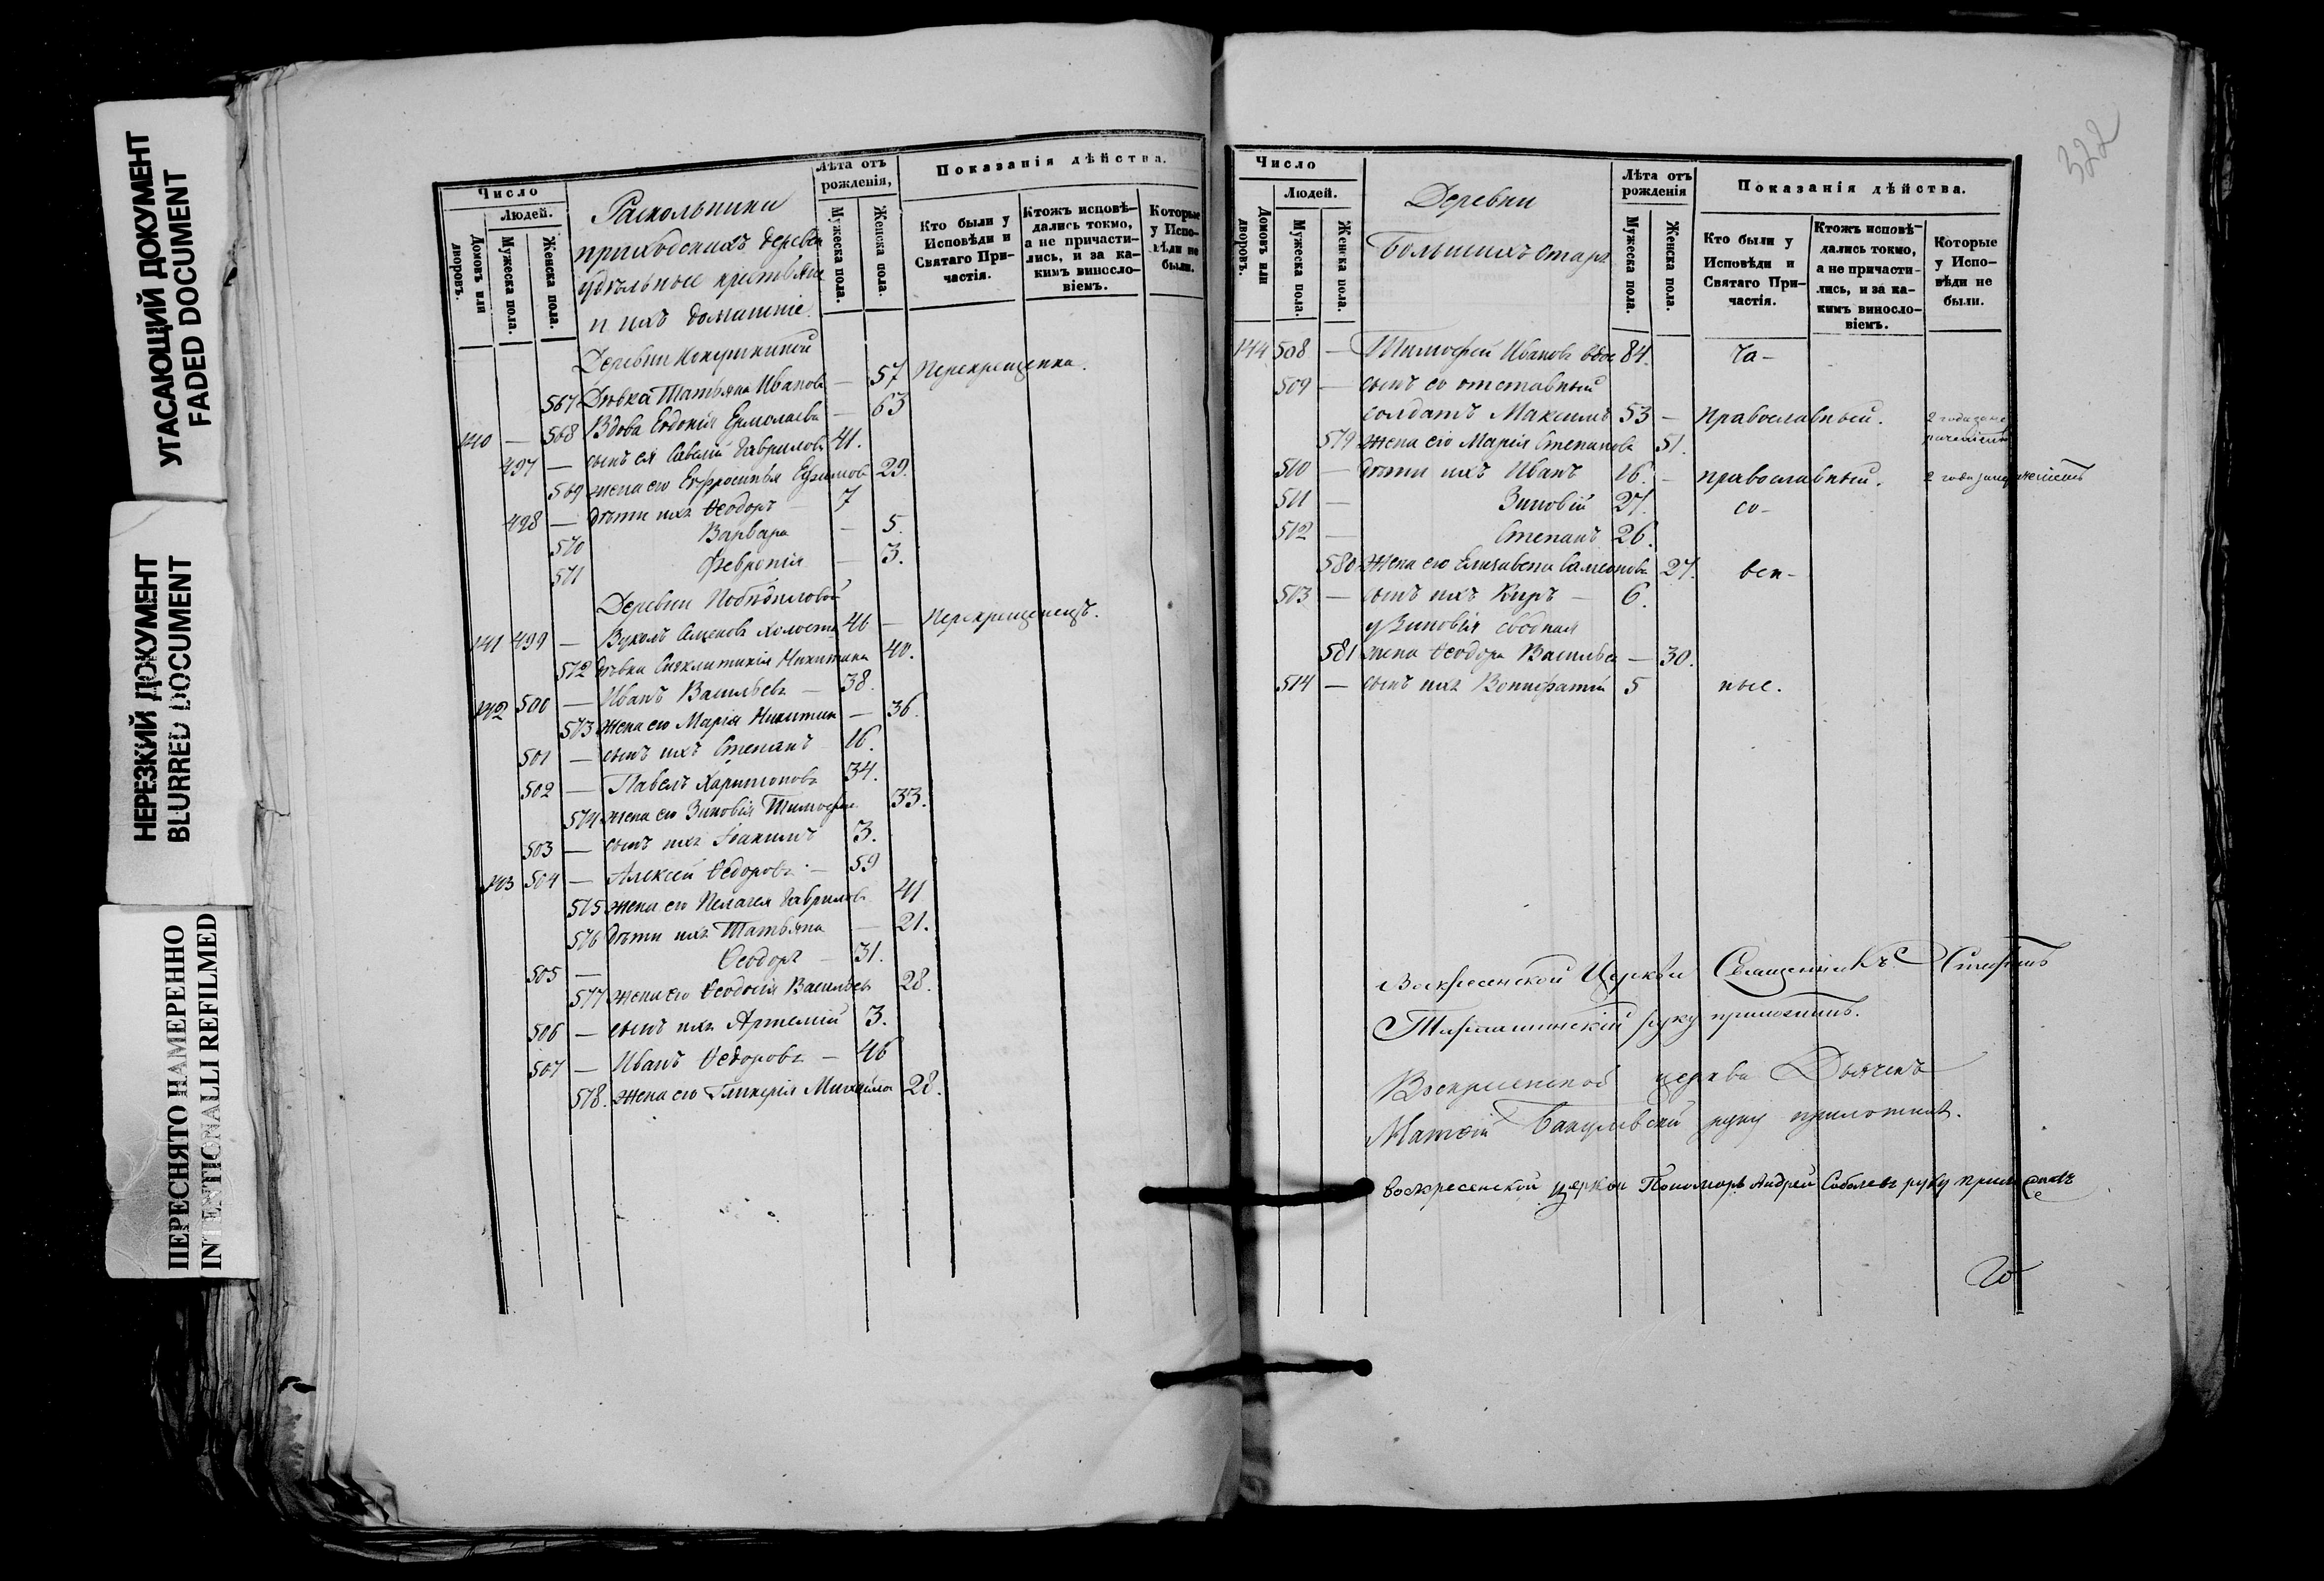 УГАСАЮЩИЙ ДОКУМЕНТ
FADED DOCUMENT
НЕРЕЗКИЙ ДОКУМЕНТ
BLURRED DOCUMENT
ПЕРЕСНЯТО НАМЕРЕННО
INTENTIONALLI REFILMED
Число
Людей.
Домовъ или дворовъ.
Мужеска пола.
Женска пола.
Раскольники
приходскихъ деревень
удѣльные крестьяне
и ихъ домашніе.
Лѣта отъ рожденія,
Мужеска пола.
Женска пола.
Показанія дѣйства.
Кто были у Исповѣди и Святаго Причастія.
Ктожъ исповѣдались токмо, а не причастились, и за какимъ винословіемъ.
Которые у Исповѣди не были.
Деревни
567 Дѣвка Татьяна Иванова — 57 Перекрещенка.
140 — 568 Вдова Евдокія Ермолаева — 63
497 — сынъ ея Савелій Гаврилов 41.
569 жена его Ефросинья Ефимов 29.
498 — дѣти ихъ Ѳеодоръ — 7
570 Варвара — 5.
571 Февронія — 3.
Деревни
141 499 — Вуколъ Семеновъ холостъ 46 — Перекрещенецъ.
572 дѣвка Синклитикія Никитина 40.
142 500 — Иванъ Васильевъ — 38.
573 жена его Марія Никитина — 36.
501 — сынъ ихъ Степанъ 16.
502 — Павелъ Харитоновъ 34.
574 жена его Зиновія Тимофѣе 33.
503 — сынъ ихъ Іоакимъ 3.
143 504 — Алексѣй Ѳедоровъ — 59
575 жена его Пелагея Гаврилов 41
576 дѣти ихъ Татьяна — 21.
505 — Ѳеодоръ — 31.
577 жена его Ѳеодосія Васильев 28.
506 — сынъ ихъ Артемій 3.
507 — Иванъ Ѳедоровъ — 46
578. жена его Гликерія Михайло 28.
322
Число
Людей.
Домовъ или дворовъ.
Мужеска пола.
Женска пола.
Деревни
Большихъ Отаръ
Лѣта отъ рожденія
Мужеска пола.
Женска пола.
Показанія дѣйства.
Кто были у Исповѣди и Святаго Причастія.
Ктожъ исповѣдались токмо, а не причастились, и за какимъ винословіемъ.
Которые у Исповѣди не были.
144 508 — Тимофей Ивановъ вдов 84. Ча-
509 — сынъ его отставный
солдатъ Максимъ 53 — православный. 2 года
579 жена его Марія Степанова 51.
510 — дѣти ихъ Иванъ 16. — православный. 2 года
511 — Зиновій 27. со-
512 — Степанъ 26.
580 жена его Елизавета Самсонова 27. вен-
513 — сынъ ихъ Киръ — 6.
у Зиновія сводная
581 жена Ѳеодора Васильев — 30.
514 — сынъ ихъ Вонифатій 5 ные.
Воскресенской Церкви Священникъ
руку приложилъ.
Воскресенской церкви Дьячекъ
Матѳій Бакулевскій руку приложилъ.
Воскресенской церкви Пономарь Андрей Соболевъ руку приложилъ